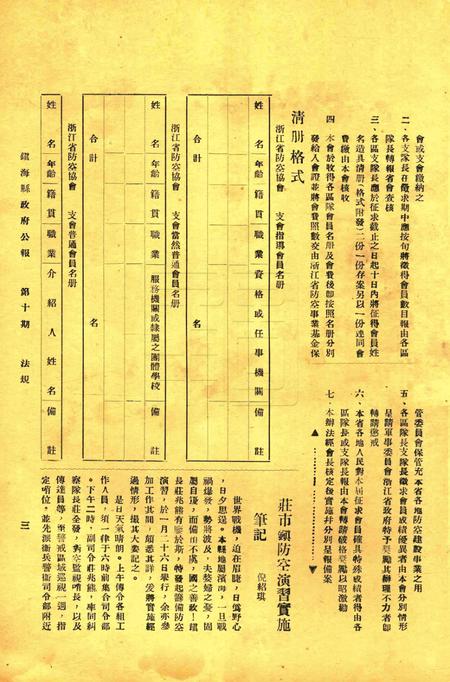 會或支會繳納之
二、各支隊長在徵求期中應按旬將徵得會員數目報由各區
隊長轉報省會查核
三、各區支隊長應於征求截止之日起十日內將征得會員姓
名造具清册(格式附發)二份一份存案另以一份連同會
費繳由本會核收
四、本會於收得各區隊會員名册及會費後卽按照名册分別
發給入會證並將會費照數交由浙江省防空事業基金保
管委員會保管充本省各地防空建設事業之用
五、各區隊長支隊長徵求會員成績優異者由本會分別情形
呈請軍事委員會浙江省政府特予獎勵其辦理不力者卽
轉請懲戒
六、本省各地人民對本屆徵求會員確具特殊成績者得由各
區隊長或支隊長報由本會轉請破格獎勵以昭激勸
七、本辦法經會長核定後實施幷分別呈報備案
清册格式
浙江省防空協會 支會指導會員名册
姓名 年齡 籍貫 職業 資格或任事機關 備註
合計 名
浙江省防空協會 支會當然會員名册
姓名 年齡 籍貫 職業 服務機關或隸屬之團體學校 備註
合計 名
浙江省防空協會 支會普通會員名册
姓名 年齡 籍貫 職業 介紹人姓名 備註
莊市鎮防空演習實施
筆記
倪紹琪
世界戰機,迫在眉睫,日寇野心
,日夕思逞。本縣地屬濱海,一旦戰
禍爆發,勢將波及,夫婺婦之憂,固
屬自擾,而備由不虞,國之善政!鎮
長莊兆熊有鑒於斯,特發起籌備防空
演習,於一月二十六日舉行,余亦參
加工作其間,頗悉其詳,爰將實施經
過情形,撮其大要記之。
是日天氣晴朗。上午傳令各組工
作人員,須一律于六時前集合司令部
。下午二時,副司令莊兆熊,率同糾
察隊長莊全發,對空監視哨長,以及
傳達員等,至警戒區域巡視一遍,指
定哨位,並先派衛兵警衛司令部附近
鎮海縣政府公報 第十期 法規
三